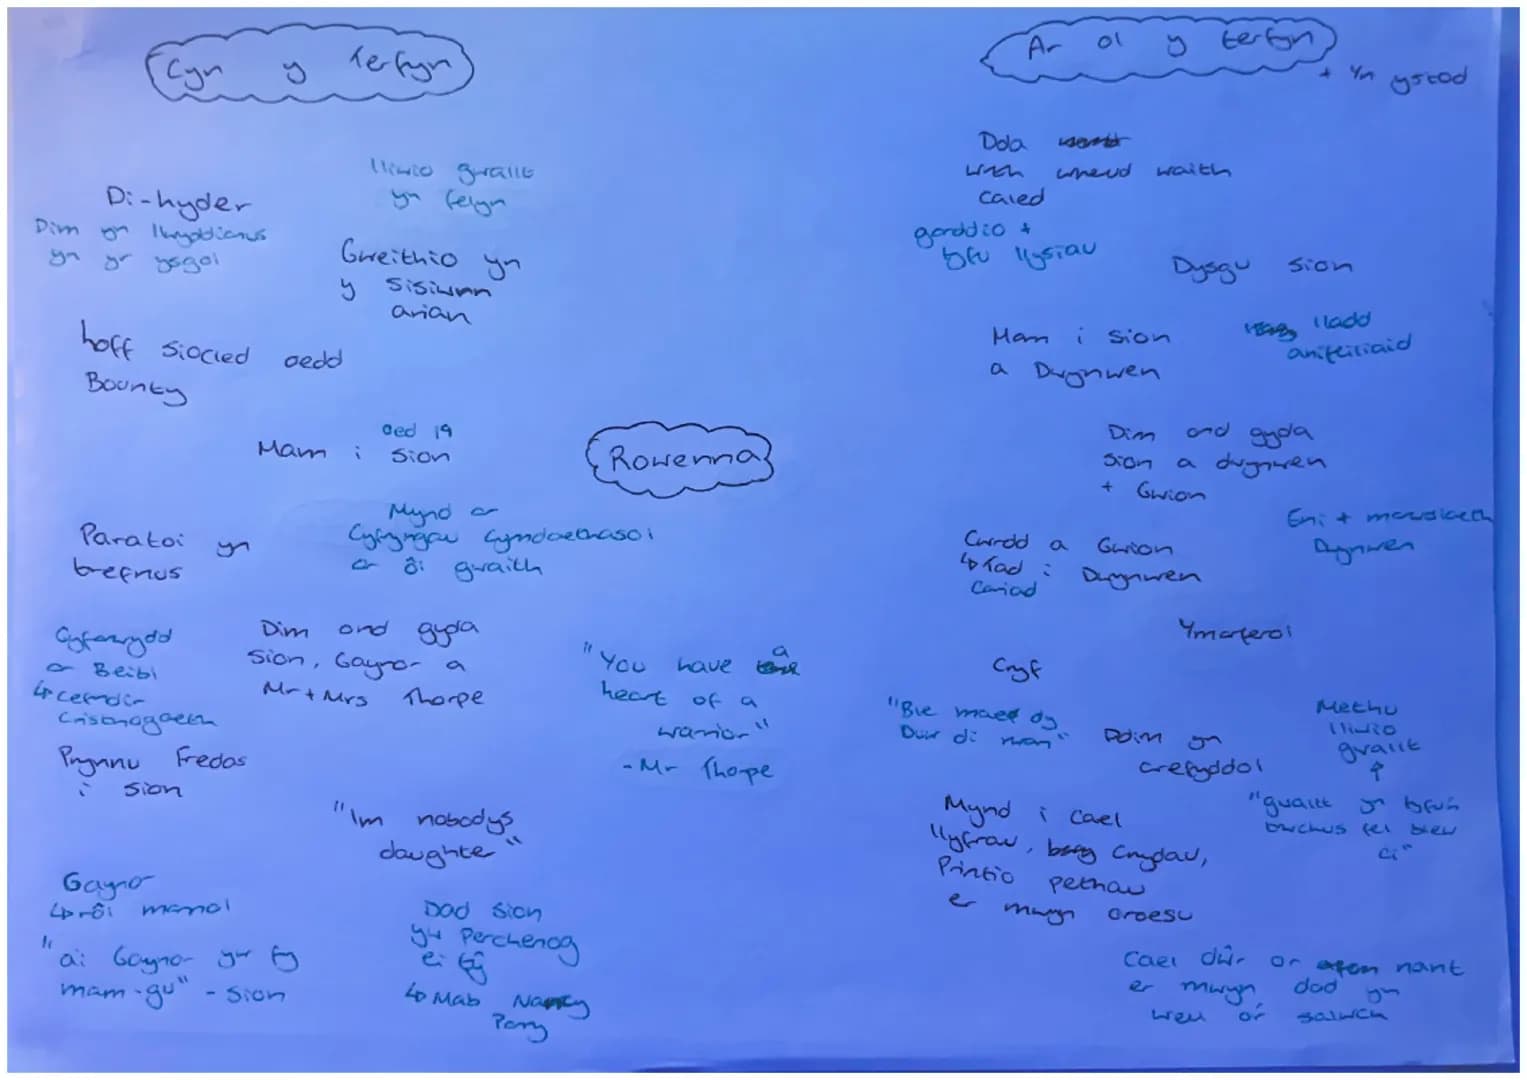 Cyn y terfyn
Di-hyder
Dim yn llwyddianus
yn yr ysgol
lliwio gwallt
yn felyn
Gweithio yn
y Sisiwrn
arian
hoff siocled oedd
Bounty
oed 19
Mam i Sion
Paratoi yn
trefnus
Mynd ar
Cyfyngau Cymdaethasol
ar ôl gwaith
Cyfarwydd
ar Beibl
↳ cefndir
Cristnogaeth
Dim ond gyda
Sion, Gaynor a
Mr + Mrs Thorpe
Prynnu Fredos
i sion
"Im nobodys
daughter"
Gaynor
↳ rôl mamol
"ai Gaynor yw fy
mam-gu" - Sion
Dad Sion
yw Perchenog
ei tŷ
↳ Mab Nancy
Parry
Rowenna
"You have a
heart of a
warrior"
- Mr Thorpe
Ar ol y terfyn
+ Yn ystod
Dda
wrth wneud waith
caled
garddio +
tyfu llysiau
Dysgu Sion
Mam i Sion
a Dwynwen
lladd
anifeiliaid
Dim ond gyda
Sion a dwynwen
+ Gwion
Cwrdd a Gwion
↳ Tad i Dwynwen
Cariad
Eni + marwolaeth
Dwynwen
Ymarferol
Cryf
"Ble maer dy
Duw di rwan"
Ddim yn
crefyddol
Methu
lliwio
gwallt
"gwallt yn tyfu'n
bwchus fel blew
ci"
Mynd i cael
llyfrau, Crydau,
Printio pethau
er mwyn oroesu
Cael dŵr or nant
er mwyn dod yn
well o'r salwch